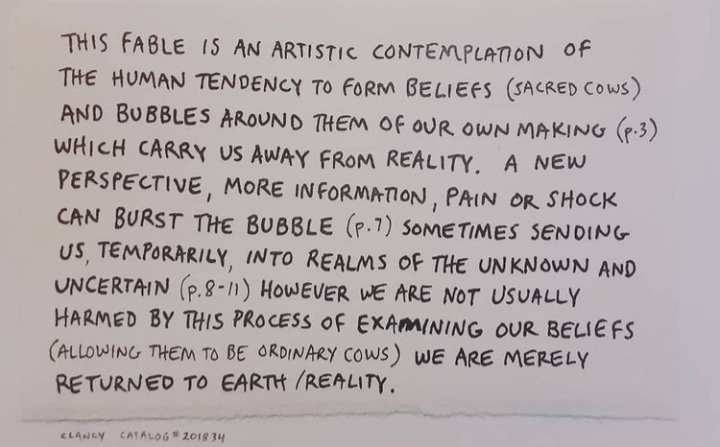 THIS FABLE IS AN ARTISTIC CONTEMPLATION OF
THE HUMAN TENDENCY TO FORM BELIEFS (SACRED COWS)
AND BUBBLES AROUND THEM OF OUR OWN MAKING (p.3)
WHICH CARRY US AWAY FROM REALITY. A NEW
PERSPECTIVE, MORE INFORMATION, PAIN OR SHOCK
CAN BURST THE BUBBLE (P.7) SOMETIMES SENDING
US, TEMPORARILY, INTO REALMS OF THE UNKNOWN AND
UNCERTAIN (p.8-11) HOWEVER WE ARE NOT USUALLY
HARMED BY THIS PROCESS OF EXAMINING OUR BELIEFS
(ALLOWING THEM TO BE ORDINARY COWS) WE ARE MERELY
RETURNED TO EARTH/REALITY.
CLANCY CATALOG # 201834